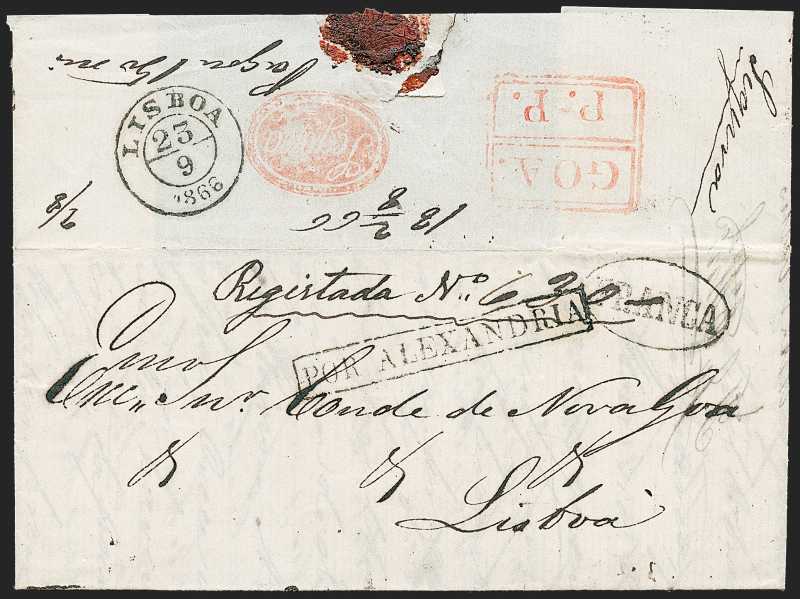 Pagou
LISBOA
23
9
1866
GOA.
P.P.
18 2/8 66
Registada Nº 630
FRANCA
POR ALEXANDRIA
Exmo. Snr. Conde de Nova Goa
Lisboa